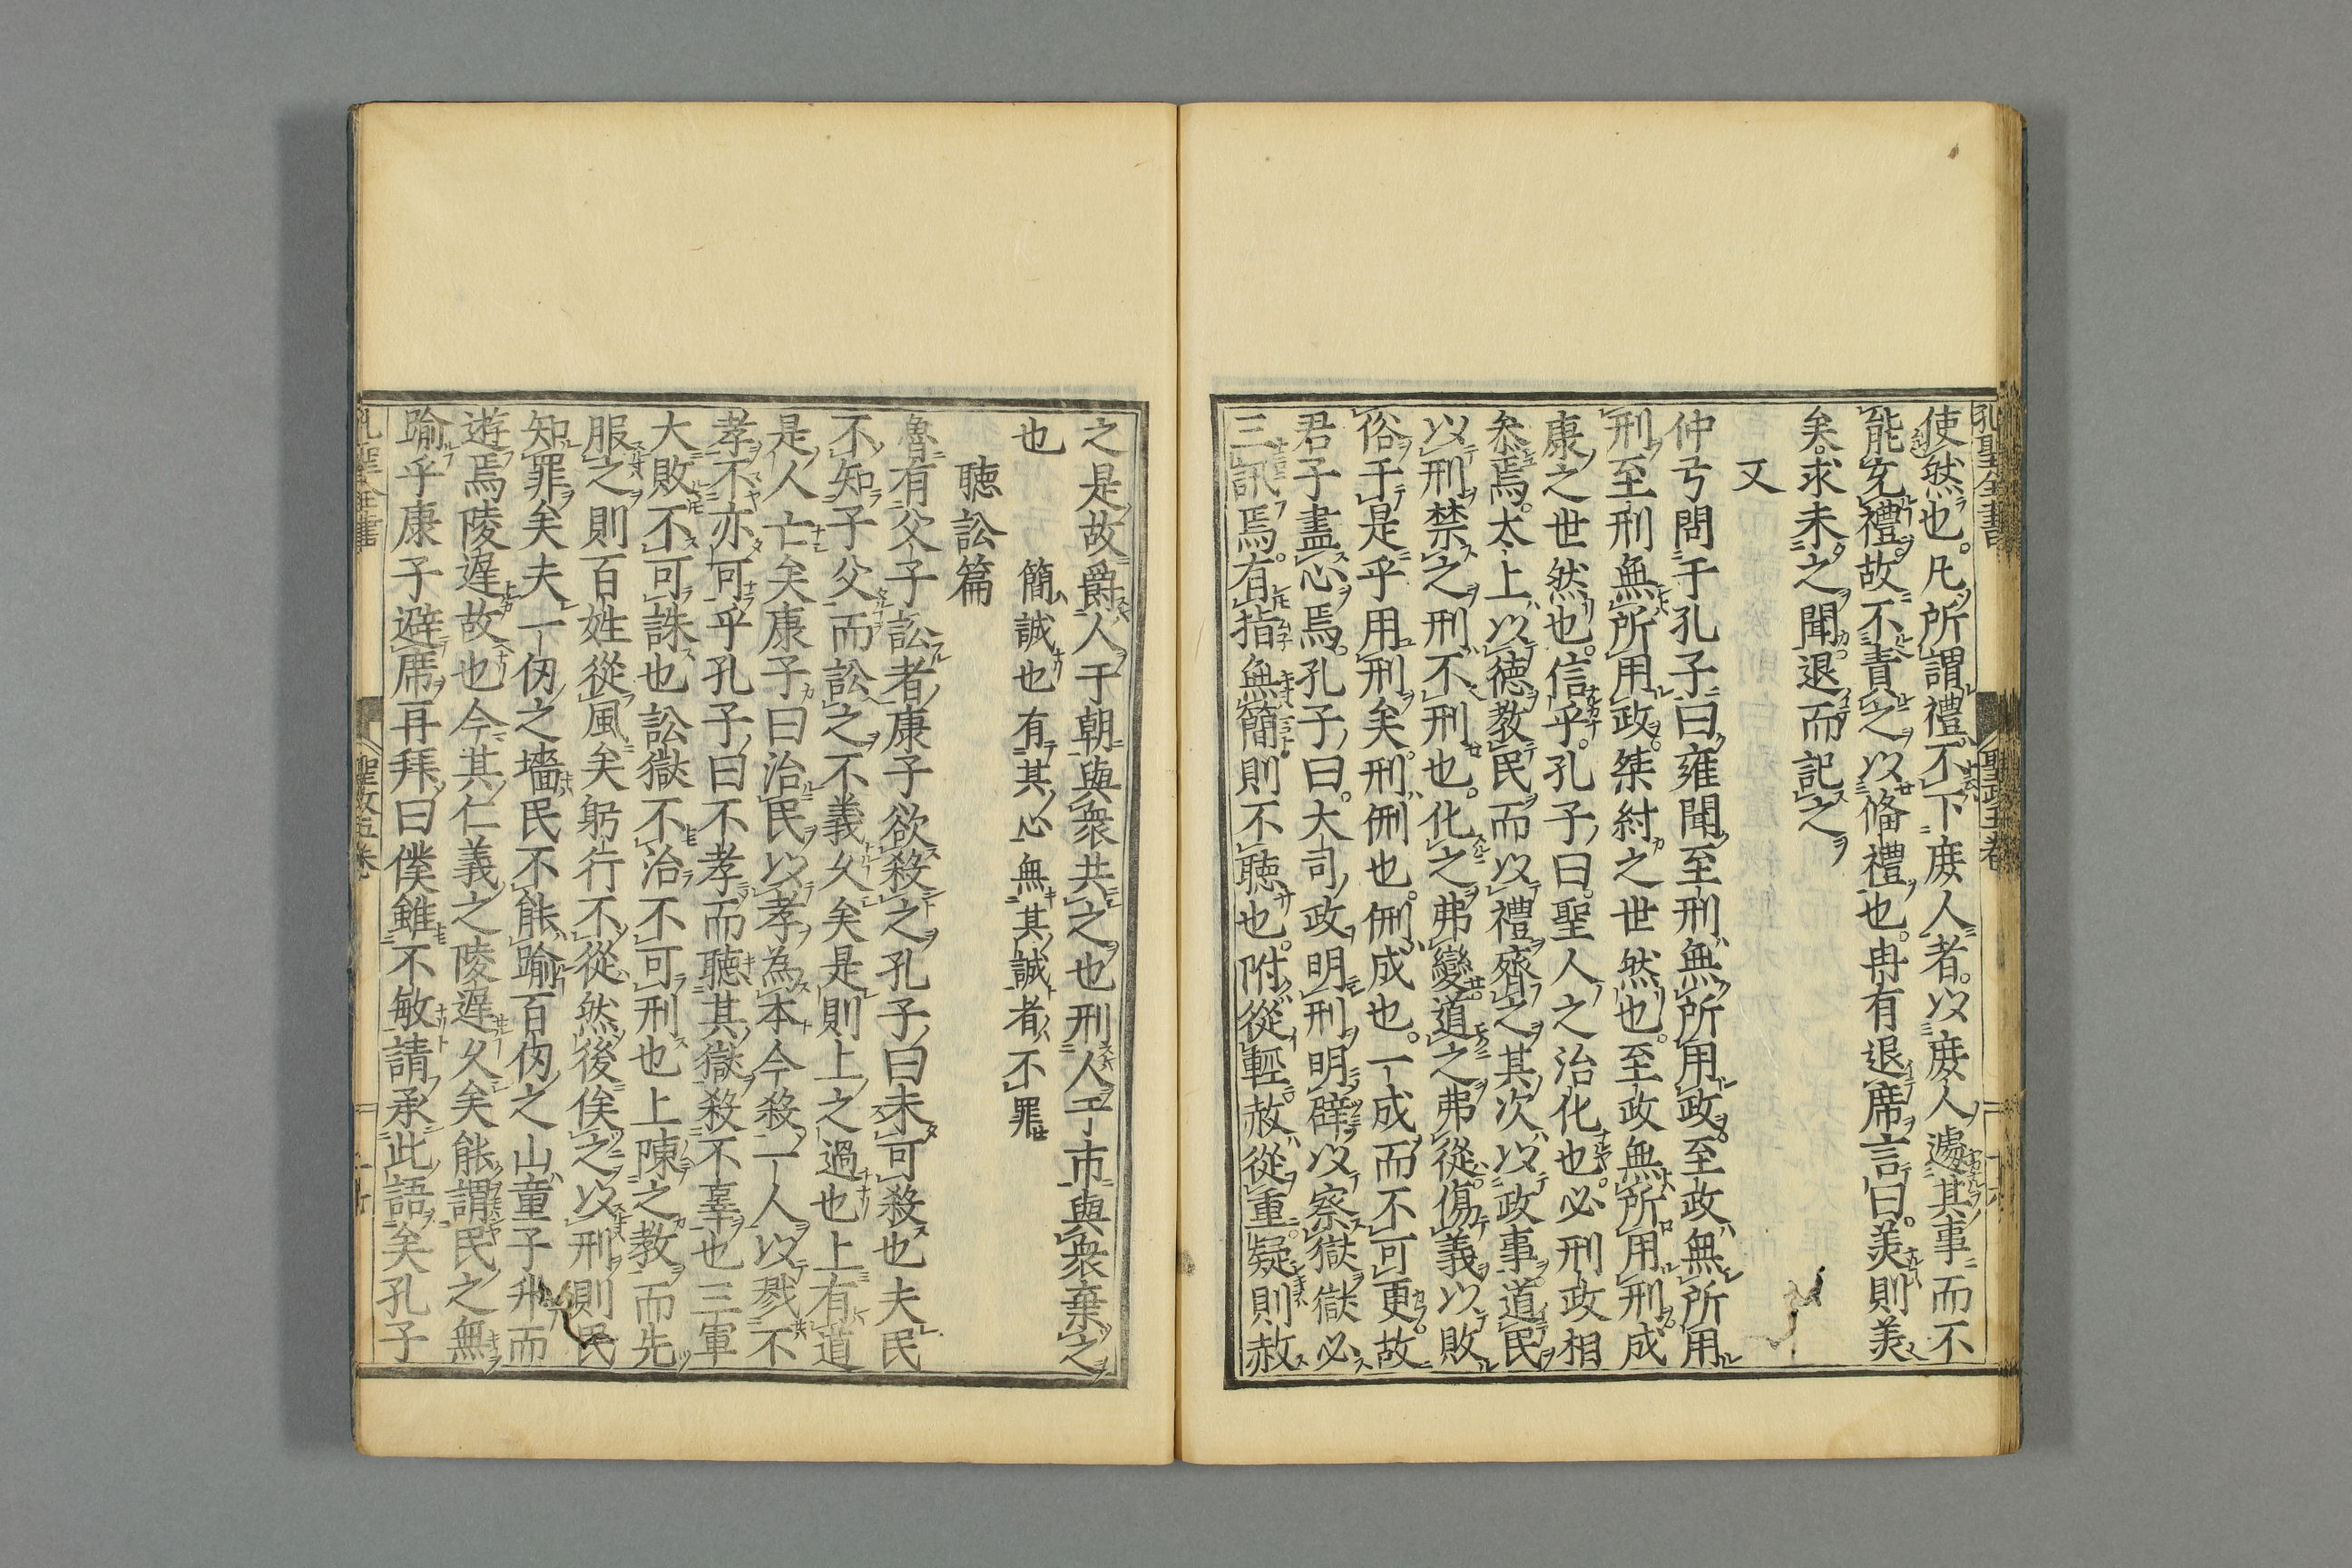 孔聖全書
聖政五卷
使然也。凡所謂禮不下庶人者。以庶人遽其事而不
能充禮。故不責之以備禮也。冉有退席言曰。美則美
矣。求未之聞。退而記之
又
仲弓問于孔子曰雍聞至刑無所用政。至政無所用
刑至刑無所用政。桀紂之世然也。至政無所用刑成
康之世然也。信乎。孔子曰。聖人之治化也。必刑政相
叅焉。太上以德教民而以禮齊之其次以政事。道民
以刑禁之刑不刑也。化之弗變道之弗從。傷義以敗
俗于是乎用刑矣。刑侀也。侀成也。一成而不可更。故
君子盡心焉。孔子曰。大司政明刑明辟以察獄獄必
三訊焉。有指無簡則不聽也。附從輕。赦從重疑則赦
之是故爵人于朝與衆共之也刑人于市與衆棄之
也
簡誠也有其心無其誠者不罪
聽訟篇
魯有父子訟者康子欲殺之孔子曰未可殺也夫民
不知子父而訟之不義久矣是則上之過也上有道
是人亡矣康子曰治民以孝為本今殺一人以戮不
孝不亦可乎孔子曰不孝而聽其獄殺不辜也三軍
大敗不可誅也訟獄不治不可刑也上陳之教而先
服之則百姓從風矣躬行不從然後俟之以刑則民
知罪矣夫一仞之墻民不能踰百仞之山童子升而
遊焉陵遲故也今其仁義之陵遲久矣能謂民之無
踰乎康子避席再拜曰僕雖不敏請承此語矣孔子
孔聖全書
聖政五卷